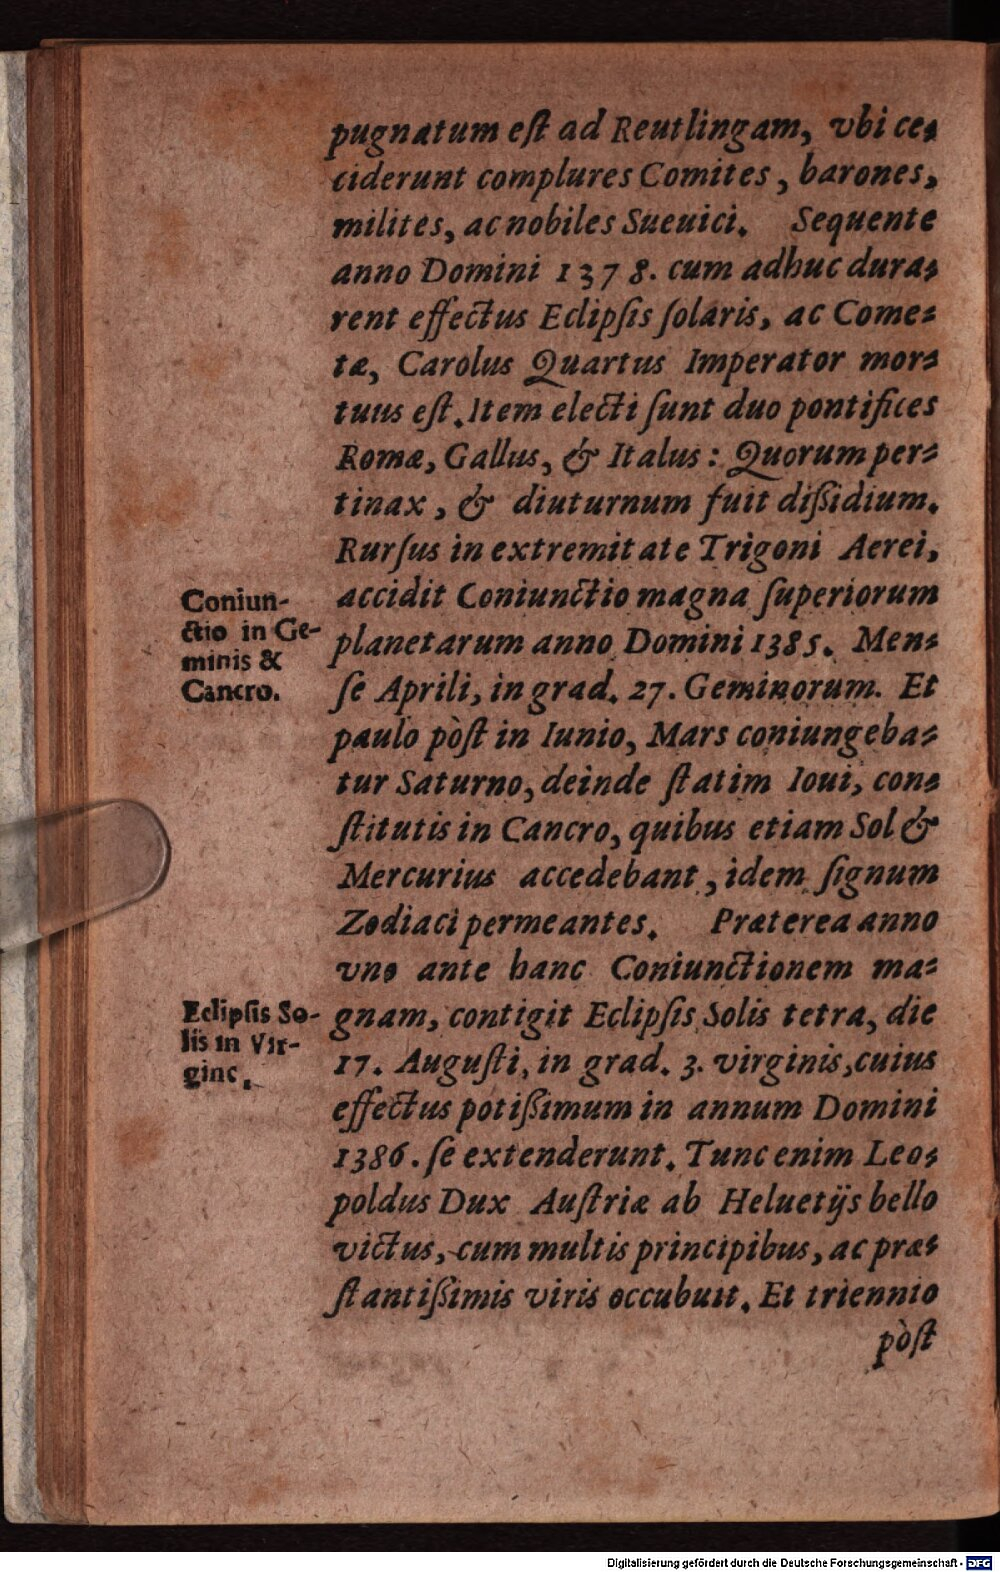 pugnatum eſt ad Reutlingam, vbi ce⸗
ciderunt complures Comites, barones,
milites, ac nobiles Sueuici. Sequente
anno Domini 1378. cum adhuc dura⸗
rent effectus Eclipſis ſolaris, ac Come⸗
tæ, Carolus Quartus Imperator mor⸗
tuus eſt. Item electi ſunt duo pontifices
Romæ, Gallus, & Italus: Quorum per⸗
tinax, & diuturnum fuit dißidium.
Rurſus in extremitate Trigoni Aerei,
accidit Coniunctio magna ſuperiorum
planetarum anno Domini 1385. Men⸗
ſe Aprili, in grad. 27. Geminorum. Et
paulo pòſt in Iunio, Mars coniungeba⸗
tur Saturno, deinde ſtatim Ioui, con⸗
ſtitutis in Cancro, quibus etiam Sol &
Mercurius accedebant, idem ſignum
Zodiaci permeantes. Præterea anno
vno ante hanc Coniunctionem ma⸗
gnam, contigit Eclipſis Solis tetra, die
17. Auguſti, in grad. 3. virginis, cuius
effectus potißimum in annum Domini
1386. ſe extenderunt. Tunc enim Leo⸗
poldus Dux Auſtriæ ab Heluetijs bello
victus, cum multis principibus, ac præ⸗
ſtantißimis viris occubuit. Et triennio
pòſt
Coniun-
ctio in Ge-
minis &
Cancro.
Eclipſis So-
lis in Vir-
gine.
Digitalisierung gefördert durch die Deutsche Forschungsgemeinschaft - DFG